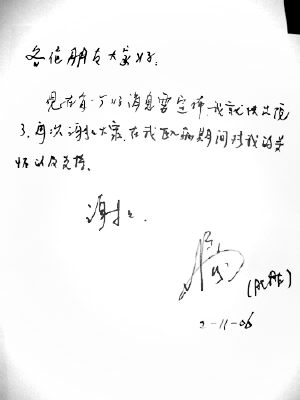 各位朋友大家好:
现在有一个好消息要宣佈,我就快出院
了,再次谢谢大家,在我医病期间对我的关
怀以及支持。
谢谢.
2-11-06